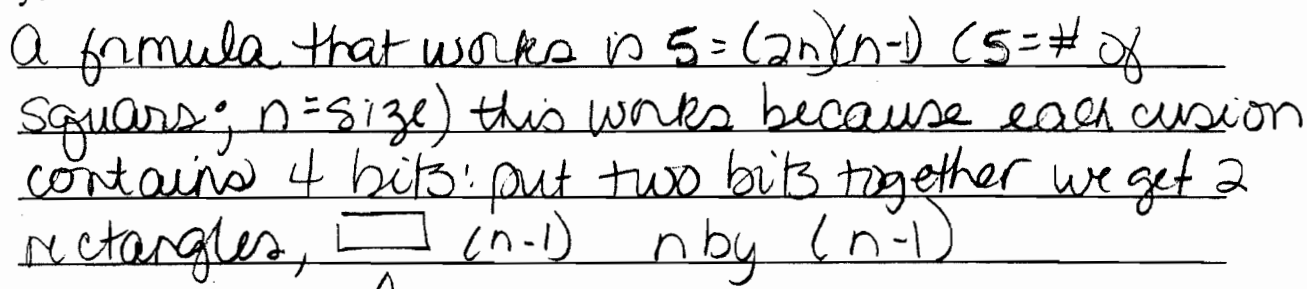 a formula that works is S=(2n)(n-1) (S=# of
squars; n=size) this works because each cusion
contains 4 bits: put two bits together we get 2
rectangles, (n-1) n by (n-1)
n